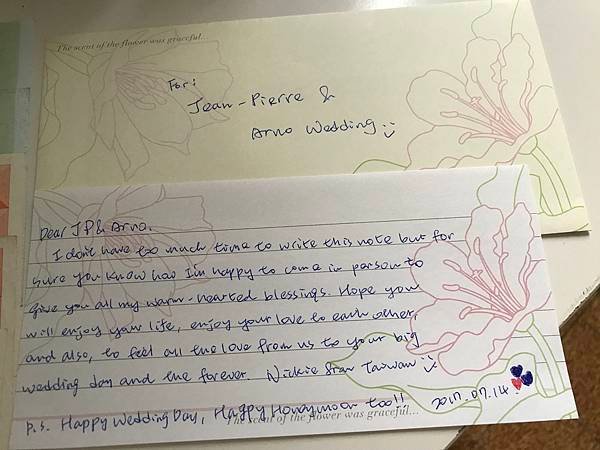 The scent of the flower was graceful...
For:
Jean-Pierre &
Arno Wedding :)
Dear JP & Arno.
I don't have too much time to write this note but for
sure you know how I'm happy to come in person to
give you all my warm-hearted blessings. Hope you
will enjoy your life, enjoy your love to each other,
and also, to feel all the love from us to your big
wedding day and the forever. Nickie from Taiwan :)
p.s. Happy Wedding Day, Happy Honeymoon too!! 2017.07.14
The scent of the flower was graceful...